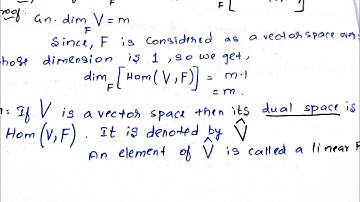 roof: Gn. dim_F V = m
Since, F is considered as a vector space over
whose dimension is 1, so we get,
dim_F [Hom (V, F)] = m·1
= m.
n: If V is a vector space then its dual space is
Hom (V, F). It is denoted by V̂
An element of V̂ is called a linear